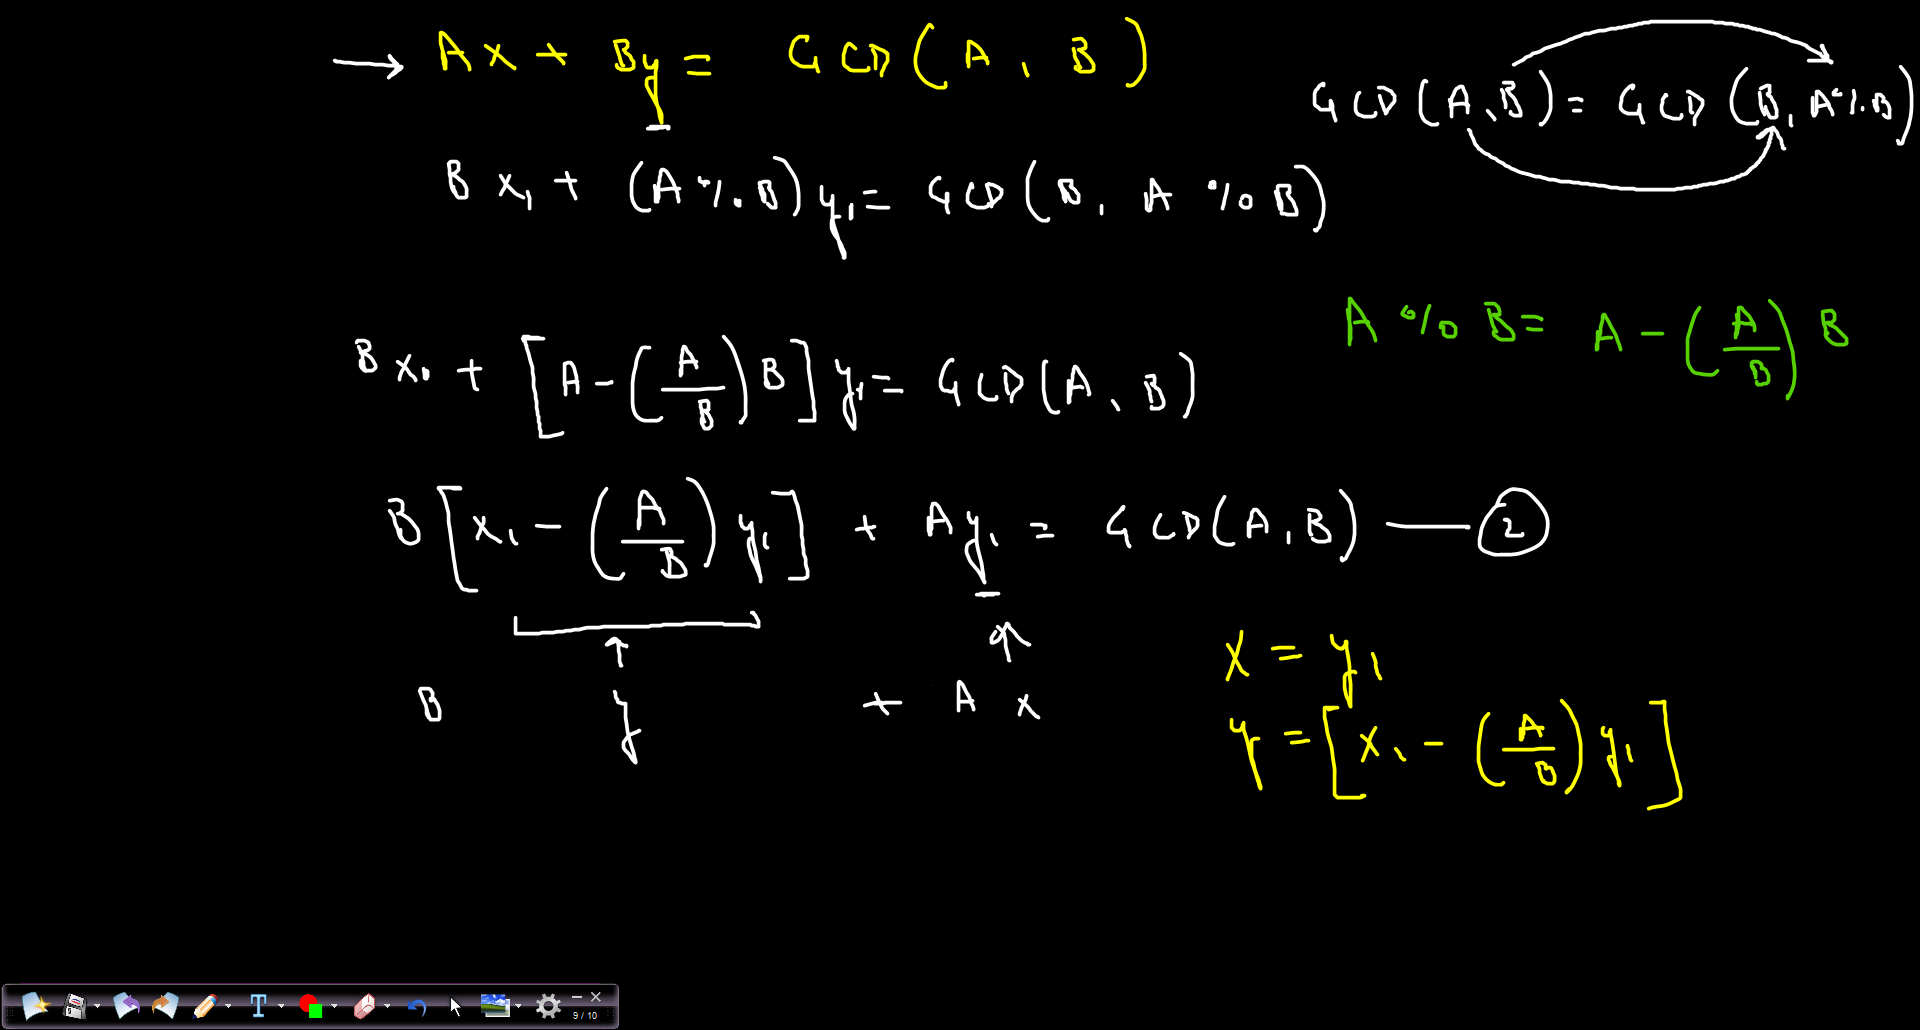 → Ax + By = GCD(A, B)
GCD(A,B) = GCD(B, A%B)
Bx₁ + (A%B)y₁ = GCD(B, A%B)
A%B = A - (A/B)B
Bx₁ + [A - (A/B)B]y₁ = GCD(A, B)
B[x₁ - (A/B)y₁] + Ay₁ = GCD(A,B) — 2
B y + A x
x = y₁
y = [x₁ - (A/B)y₁]
T
9 / 10